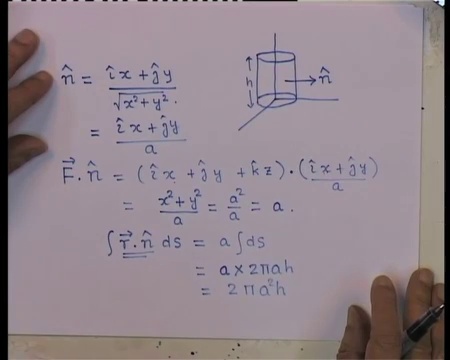 n̂ = (î x + ĵ y) / √(x² + y²) .
= (î x + ĵ y) / a
h
n̂
F⃗ . n̂ = (î x + ĵ y + k̂ z) . (î x + ĵ y) / a
= (x² + y²) / a = a² / a = a .
∫ r⃗ . n̂ ds = a ∫ ds
= a × 2πah
= 2πa²h